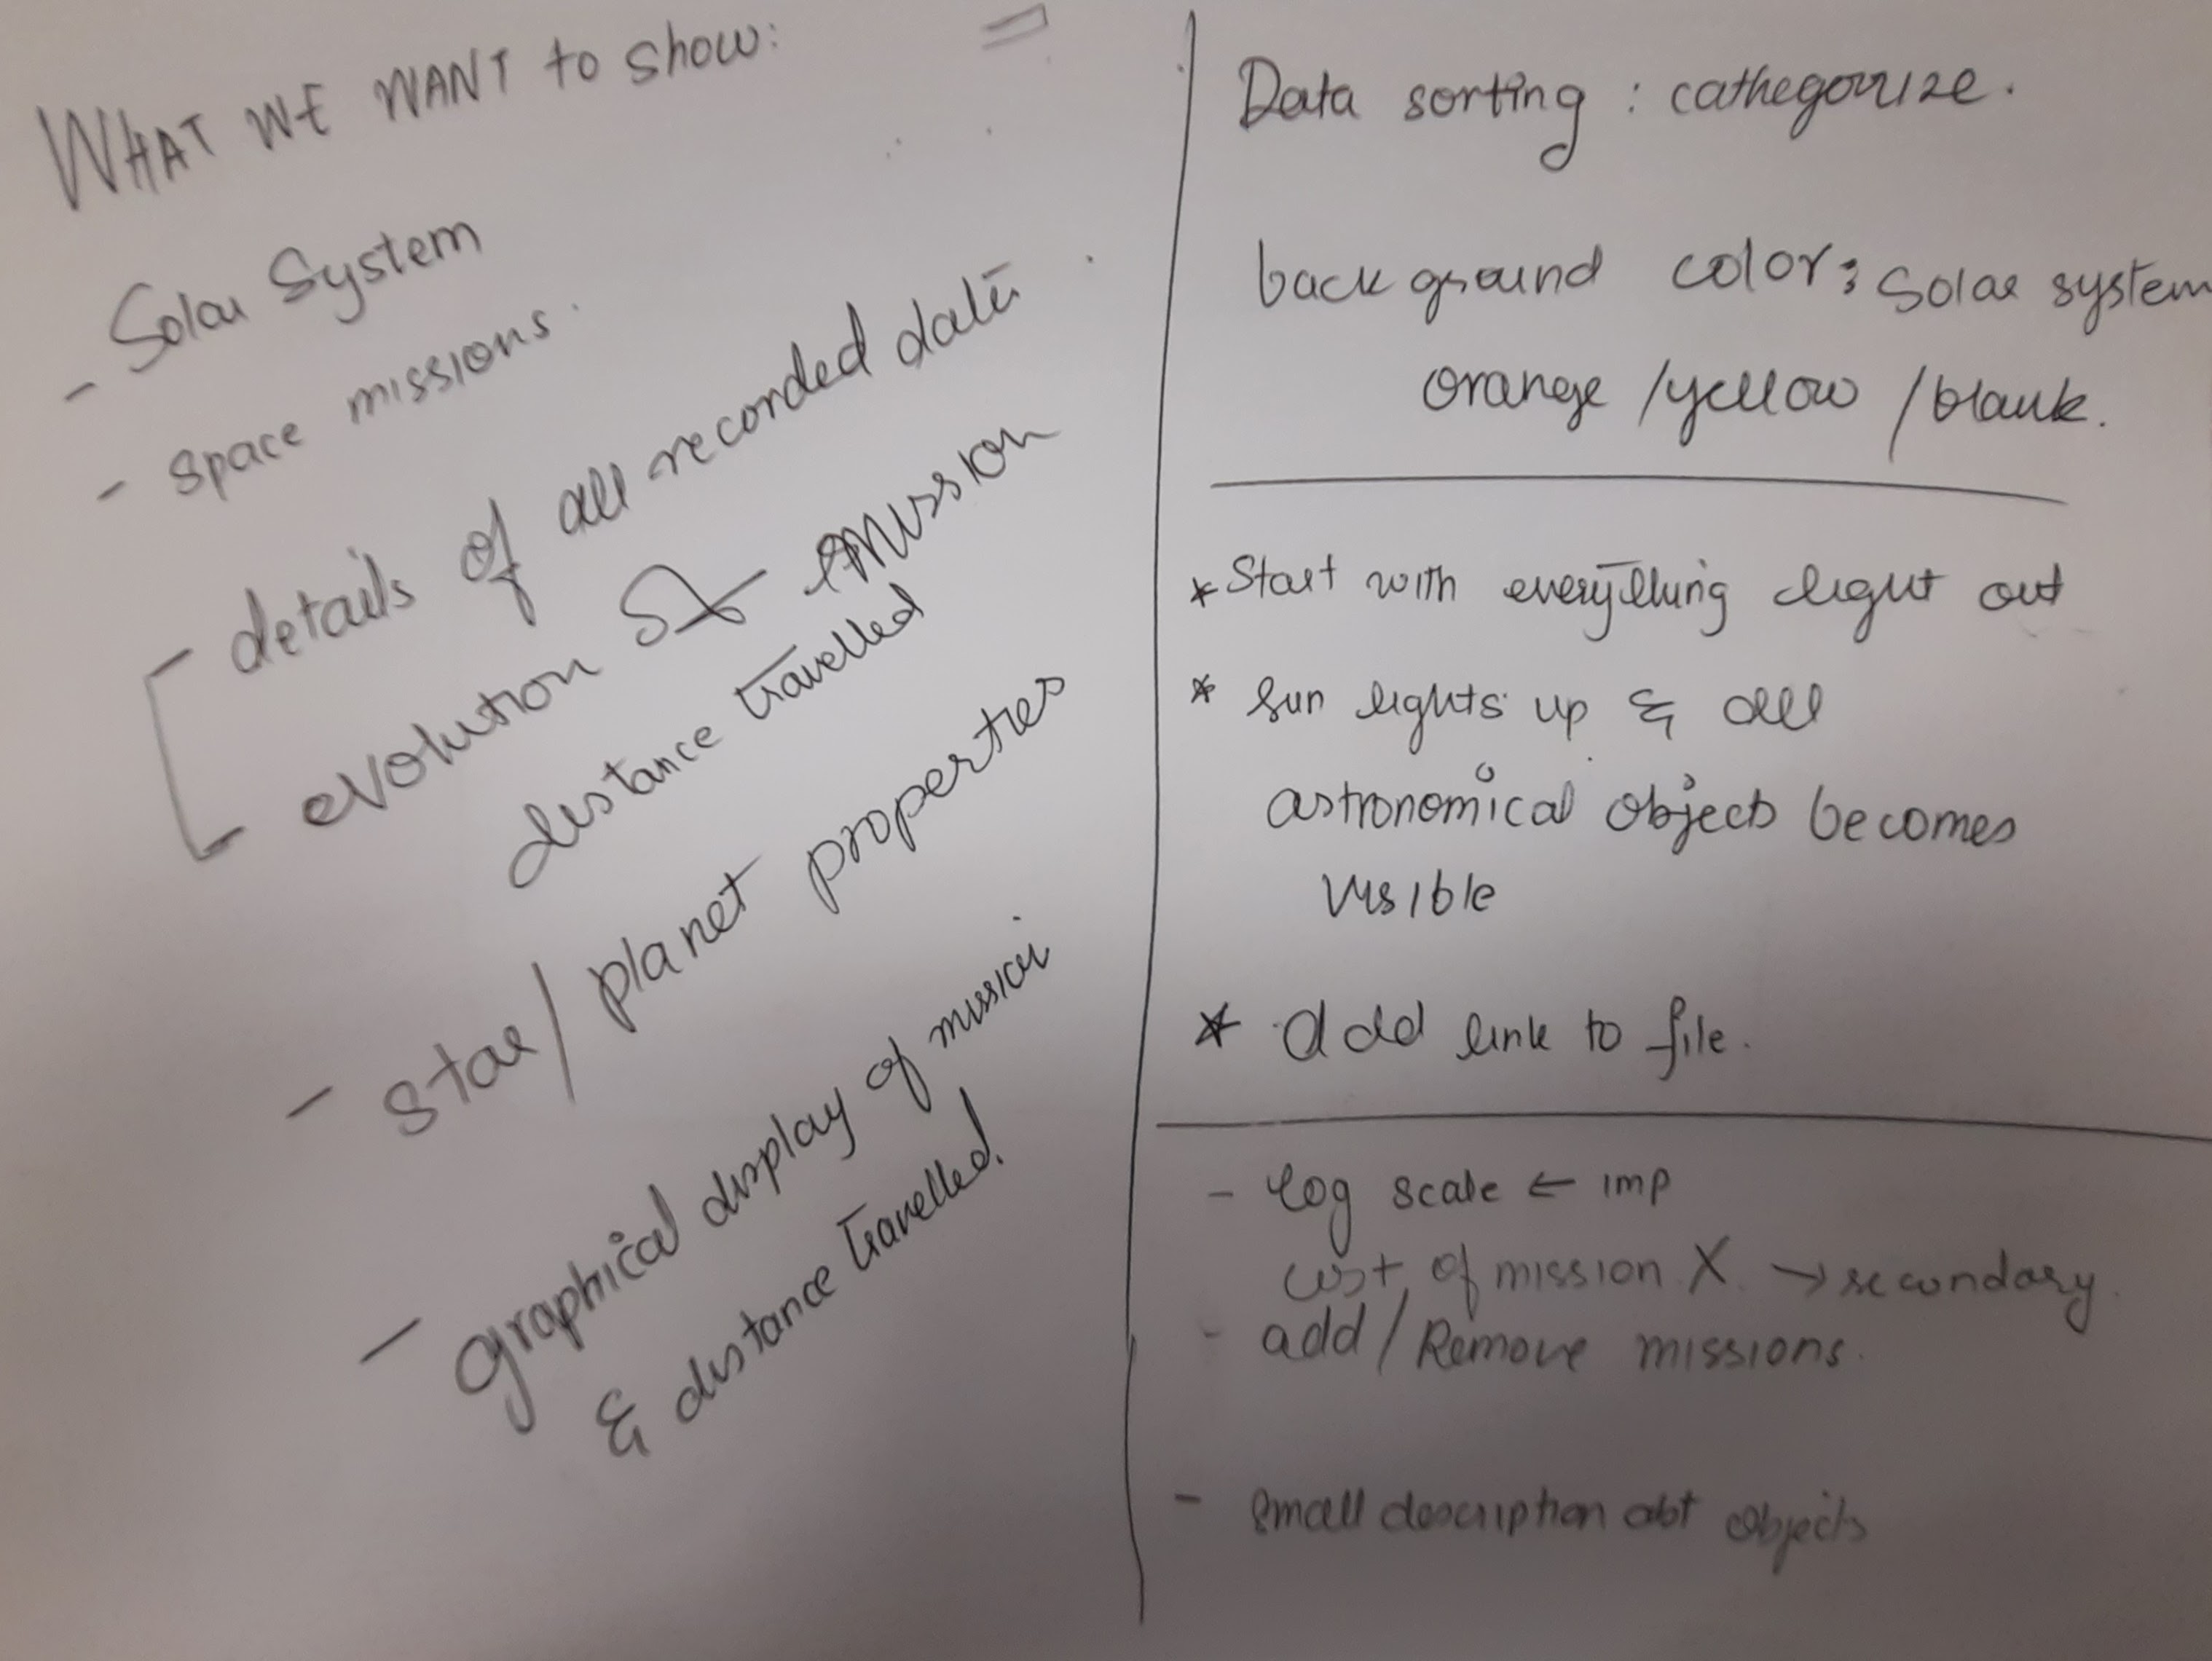 WHAT WE WANT to show:
- Solar System
- space missions.
- details of all recorded data
evolution of mission
distance travelled
- star/planet properties
- graphical display of mission
& distance travelled.
Data sorting : cathegorize.
background color: Solar system
orange /yellow /blank.
* Start with everything light out
* Sun lights up & all
astronomical objects becomes
visible
* add link to file.
- log scale ← imp
cost of mission X → secondary.
- add/Remove missions.
- small description abt objects